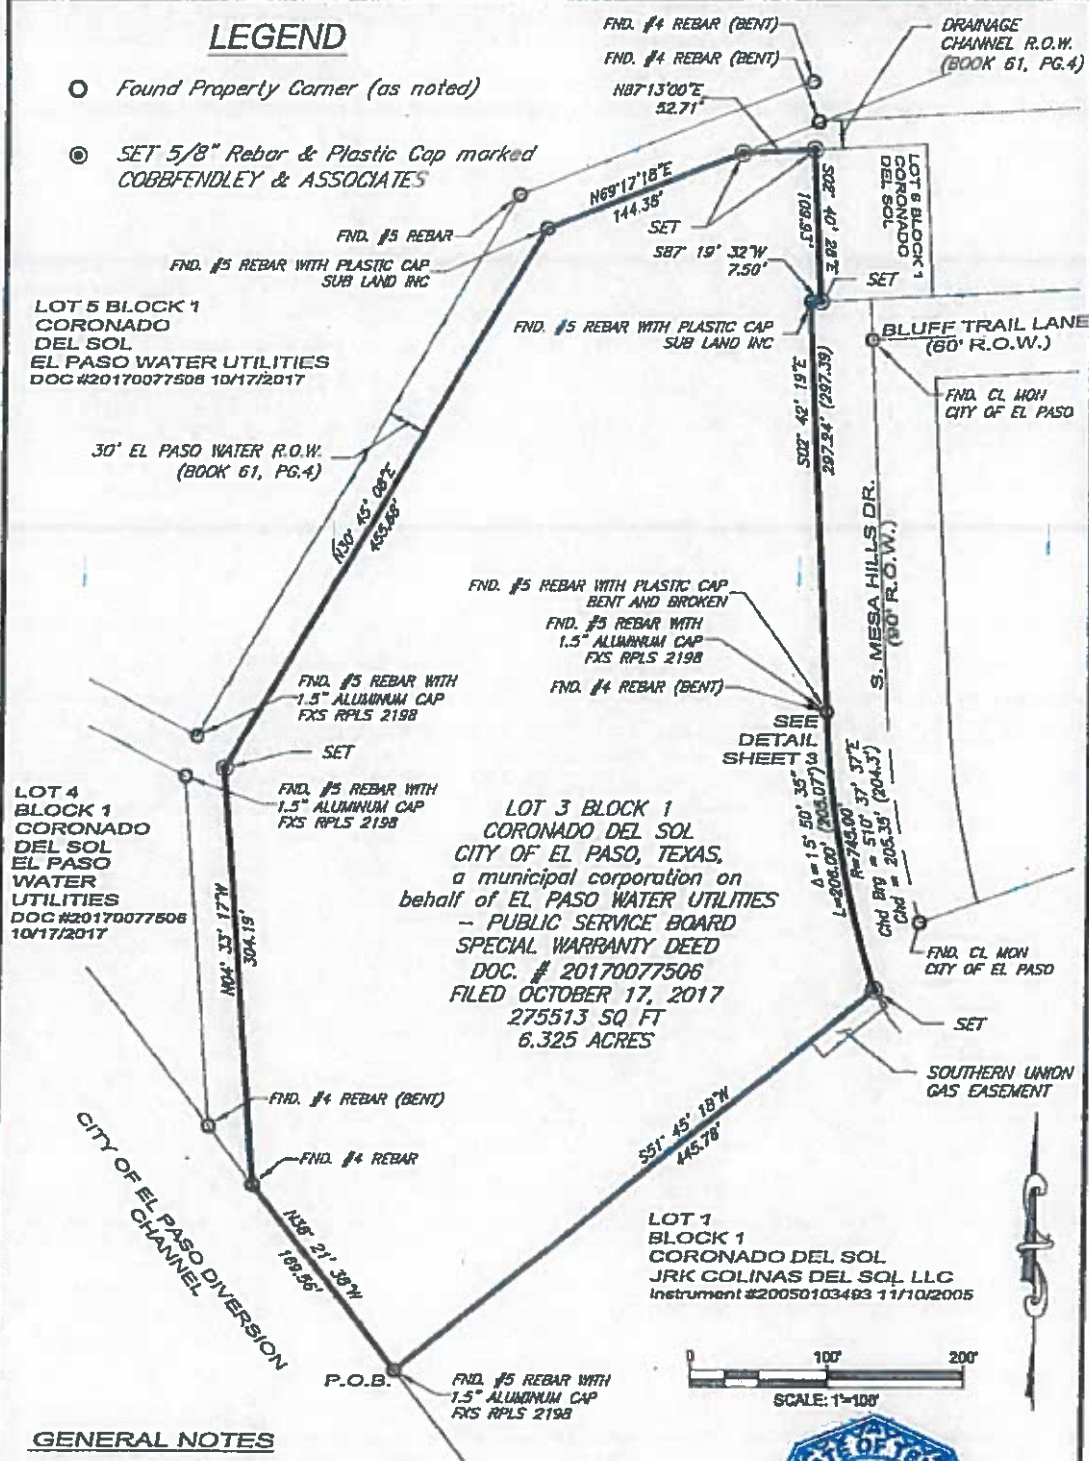 LEGEND
Found Property Corner (as noted)
SET 5/8" Rebar & Plastic Cap marked
COBBFENDLEY & ASSOCIATES
FND. #4 REBAR (BENT)
FND. #4 REBAR (BENT)
N87°13'00"E
52.71'
DRAINAGE
CHANNEL R.O.W.
(BOOK 61, PG.4)
N69°17'18"E
144.38'
SET
FND. #5 REBAR
FND. #5 REBAR WITH PLASTIC CAP
SUB LAND INC
S02° 40' 28"E
109.93'
LOT 6 BLOCK 1
CORONADO
DEL SOL
S87° 19' 32"W
7.50'
SET
LOT 5 BLOCK 1
CORONADO
DEL SOL
EL PASO WATER UTILITIES
DOC #20170077506 10/17/2017
FND. #5 REBAR WITH PLASTIC CAP
SUB LAND INC
BLUFF TRAIL LANE
(60' R.O.W.)
FND. CL MON
CITY OF EL PASO
S02° 42' 19"E
297.24' (297.39)
30' EL PASO WATER R.O.W.
(BOOK 61, PG.4)
N30° 45' 08"E
455.68'
S. MESA HILLS DR.
(90' R.O.W.)
FND. #5 REBAR WITH PLASTIC CAP
BENT AND BROKEN
FND. #5 REBAR WITH
1.5" ALUMINUM CAP
FXS RPLS 2198
FND. #4 REBAR (BENT)
SEE
DETAIL
SHEET
FND. #5 REBAR WITH
1.5" ALUMINUM CAP
FXS RPLS 2198
SET
FND. #5 REBAR WITH
1.5" ALUMINUM CAP
FXS RPLS 2198
Δ=15° 50' 35"
L=206.00' (205.07')
R=745.00'
Chd Brg = S10° 37' 37"E
Chd = 205.35' (204.3')
LOT 4
BLOCK 1
CORONADO
DEL SOL
EL PASO
WATER
UTILITIES
DOC #20170077506
10/17/2017
LOT 3 BLOCK 1
CORONADO DEL SOL
CITY OF EL PASO, TEXAS,
a municipal corporation on
behalf of EL PASO WATER UTILITIES
- PUBLIC SERVICE BOARD
SPECIAL WARRANTY DEED
DOC. # 20170077506
FILED OCTOBER 17, 2017
275513 SQ FT
6.325 ACRES
N04° 33' 17"W
304.19'
FND. CL MON
CITY OF EL PASO
SET
SOUTHERN UNION
GAS EASEMENT
FND. #4 REBAR (BENT)
FND. #4 REBAR
S51° 45' 18"W
445.78'
CITY OF EL PASO DIVERSION
CHANNEL
N38° 21' 38"W
169.56'
LOT 1
BLOCK 1
CORONADO DEL SOL
JRK COLINAS DEL SOL LLC
Instrument #20050103493 11/10/2005
P.O.B.
FND. #5 REBAR WITH
1.5" ALUMINUM CAP
FXS RPLS 2198
0 100' 200'
SCALE: 1"=100'
GENERAL NOTES